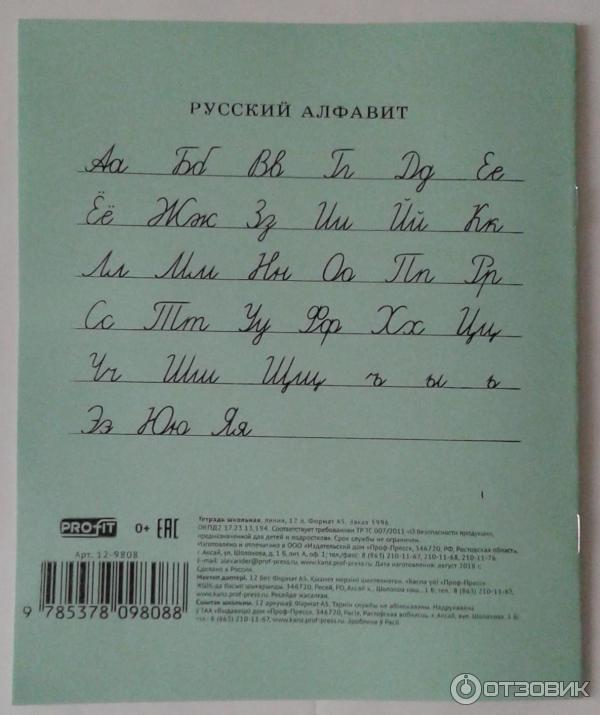 РУССКИЙ АЛФАВИТ
Аа Бб Вв Гг Дд Ее
Ёё Жж Зз Ии Йй Кк
Лл Мм Нн Оо Пп Рр
Сс Тт Уу Фф Хх Цц
Чч Шш Щщ ъ ы ь
Ээ Юю Яя
PROFIT 0+ EAC
Арт. 12-9808
9 785378 098088
Тетрадь школьная, линия, 12 л. Формат А5. Заказ 5996
ОКПД2 17.23.13.194. Соответствует требованиям ТР ТС 007/2011 «О безопасности продукции,
предназначенной для детей и подростков». Срок службы не ограничен.
Изготовлено и отпечатано в ООО «Издательский дом «Проф-Пресс», 346720, РФ, Ростовская область,
г. Аксай, ул. Шолохова, д. 1 Б, лит. А, оф. 1; тел./факс: 8 (863) 210-11-67, 210-11-68, 210-11-76
E-mail: alexander@prof-press.ru www.kanz.prof-press.ru. Дата изготовления: август 2018 г.
Сделано в России.
Мектеп дәптері. 12 бет Формат А5. «Баспа үйі «Проф-Пресс»
346720, Ресей, РО, Аксай к., 1 Б, тел. 8 (863) 210-11-67,
www.kanz.prof-press.ru.
Сшытак школьны. 12 аркушаў. Фармат А5. Тэрмін службы не абмежаваны. Надрукавана
ў ТАА «Выдавецкі дом «Проф-Прэс», 346720, Расія, Растоўская вобласць, г. Аксай, вул. Шолахава, 1 Б;
тел.: 8 (863) 210-11-67, www.kanz.prof-press.ru. Зроблена ў Расіі
ОТЗОВИК